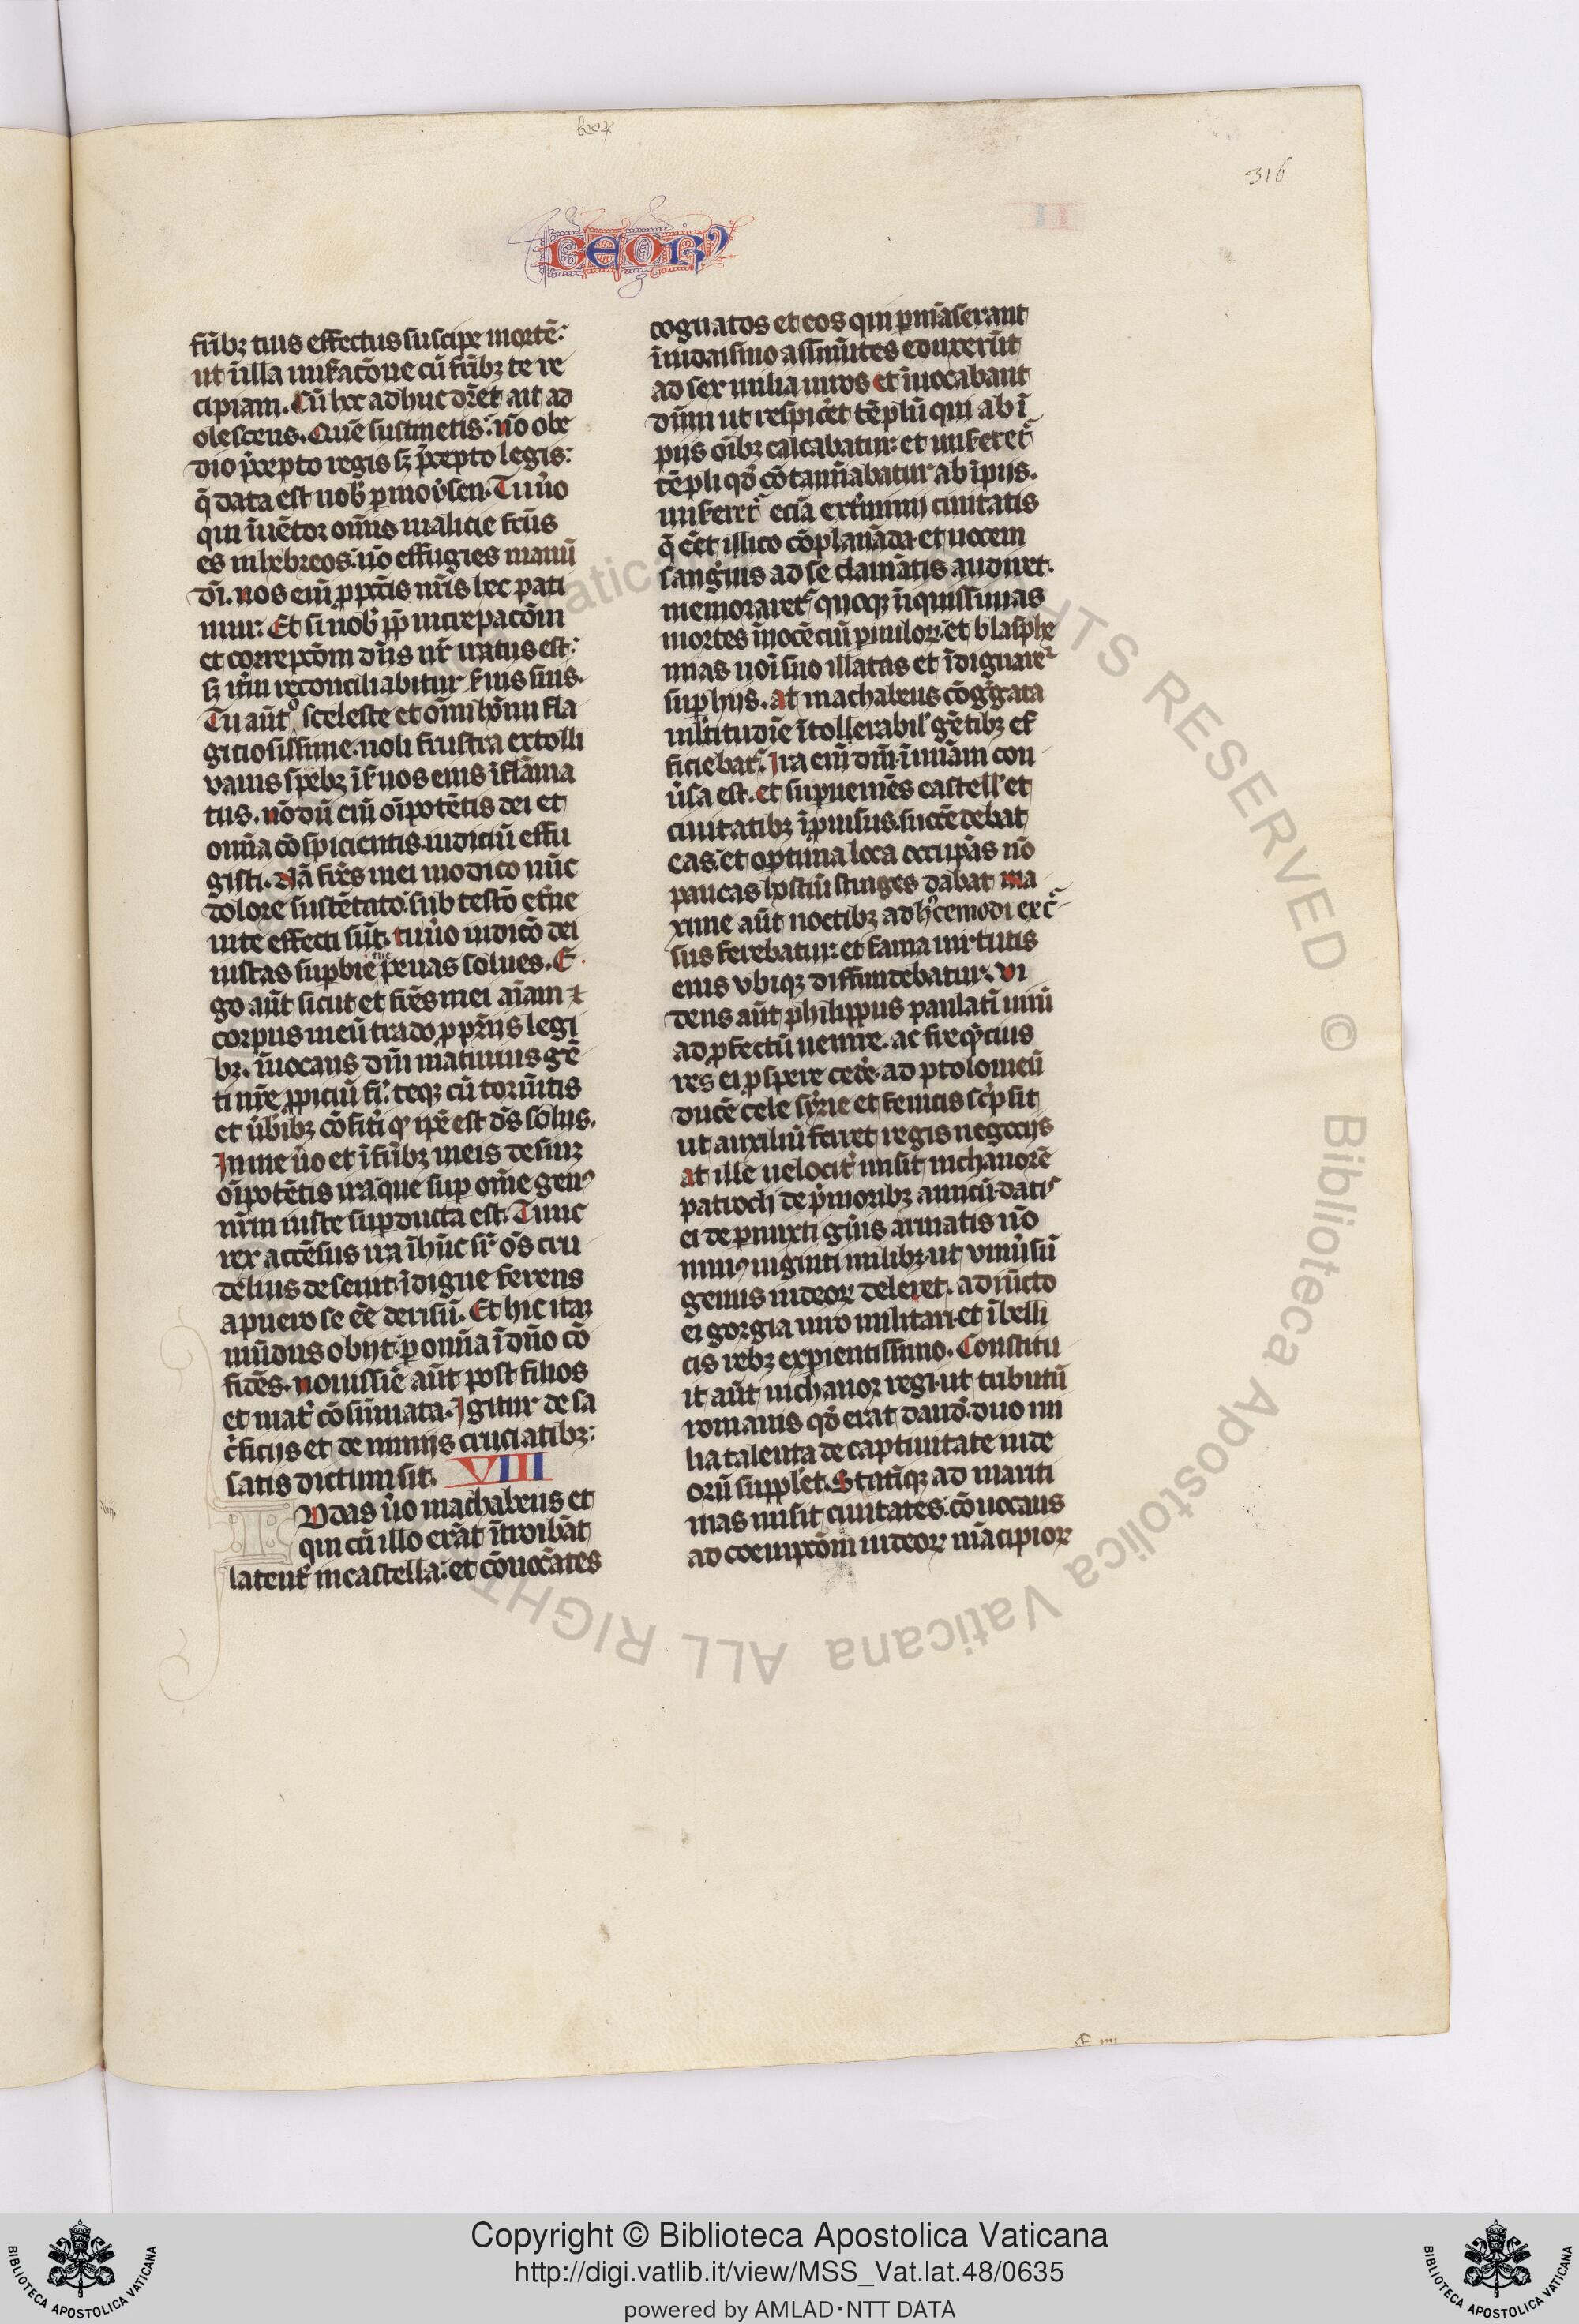 beoꝝ
316
BEORꝰ
fr̄ibꝫ tuis effectus suscipe mortē:
ut ī illa mis̄ac̄one cū fr̄ibꝫ te re
cipiam. Cū hec adhuc dr̄et ait ad
olescens. Quē sustinetis: nō obe
dio p̄cepto regis sꝫ p̄cepto legis:
q̄ data est nob̄ p moysen. Tu ūo
qui īuētor om̄is malicie fc̄us
es in hebreos: nō effugies manū
dī. nos eni ꝓ pctīs nr̄is hec pati
mur. Et si nob̄ ꝓp̄ increpac̄oem
et correpc̄om dn̄s nr̄ iratus est:
sꝫ itr̄m reconciliabitur ẜuis suis.
Tu aūt o sceleste et om̄i hoīm fla
giciosissime: noli frustra extolli
vanis spebꝫ ī ẜuos eius īflāma
tus. nōdū eni oīpotētis dei et
omīa cōspicientis. iudiciū effu
gisti. Nā fr̄es mei modico nūc
dolore sustētato: sub testō et̄ne
uite effecti sūt. tu ūo iudicō dei
iustas supbie tue penas solues. E
go aūt sicut et fr̄es mei aīam ⁊
corpus meū trado ꝓ pr̄ijs legi
bꝫ. īuocans dm̄ maturius gē
ti nr̄e ꝓpiciū fi: teqꝫ cū tormētis
et ūbibꝫ cōfitī qꝫ ip̄e est dō̄s solus.
In me ūo et ī fr̄ibꝫ meis desinꝫ
oīpotētis ira que sup om̄e genꝰ
nr̄m iuste supducta est. Tunc
rex accēsus ira ī hūc sr̄ oēs cru
delius deseuit īdigne ferens
a puero se eē derisū. Et hic itaꝫ
mūdus obijt: ꝑ omīa ī dn̄o cō
fidēs. nouissīe aūt post filios
et mat̄ cōsūmata. Igitur de sa
c̄ficijs et de nimijs cruciatibꝫ:
satis dictum sit. VIII
Vdas ūo machabeus et
qui cū illo erāt ītroibāt
latent̄ in castella: et cōuocātes
cognatos et eos qui pmāserant
ī iudaismo assumētes eduxerūt
ad sex milia uiros et īuocabant
dūm ut respic̄et tēplū qui ab ī
pijs oībꝫ calcabatur: et miseret̄
tēpli qd̄ cōtamīabatur ab īpijs.
miseret̄ eciā ext̄minij ciuitatis
q̄ eēt illico cōplanāda. et uocem
sang̅inis ad se clamātis audiret.
memoraret̄ quoqꝫ īiquissimas
mortes īnocēciū paruloꝝ. et blasphe
mias noī suo illatas et īdignare͛
sup hijs. at machabeus cōg̅gata
ml̄titudīe ītollerabil̄ gētibꝫ ef
ficiebat̄. Ira eni dm̄i ī miām con
ūsa est. et supueniēs castell̄ et
ciuitatibꝫ īpuisus. succēdebat
eas. et optima loca occupās nō
paucas hostiū strages dabat ma
xime aūt noctibꝫ ad hꝰcemodi exc̄
sus ferebatur: et fama uirtutis
eius ubiqꝫ diffundebatur. vi
dens aūt philippus paulatī uirū
ad ꝓfectū uenire. ac freqn̄cius
res ei ꝓspere cedē. ad ptolomeū
ducē cele syrie et fenicis scp̄sit
ut auxiliū ferret regis negocijs
at ille uelocit̄ misit nichanorē
patroch de p̄moribꝫ amicū. datis
ei de pmixti gn̄is armatis nō
minꝰ uiginti milibꝫ. ut vniūsū
genus iudeoꝝ deleret. adiūcto
ei gorgia uiro militari. et ī belli
cis rebꝫ expientissimo. Constitu
it aūt nichanor regi. ut tributū
romanis qd̄ erat dand̄. duo mi
lia talenta de captiuitate iude
orū suppl̄et. Statīqꝫ ad mariti
mas misit ciuitates. cōuocans
ad coempc̄om iudeoꝝ mācipioꝝ
Biblioteca Apostolica Vaticana ALL RIGHTS RESERVED ©
Copyright © Biblioteca Apostolica Vaticana
http://digi.vatlib.it/view/MSS_Vat.lat.48/0635
powered by AMLAD·NTT DATA
BIBLIOTECA APOSTOLICA VATICANA
BIBLIOTECA APOSTOLICA VATICANA